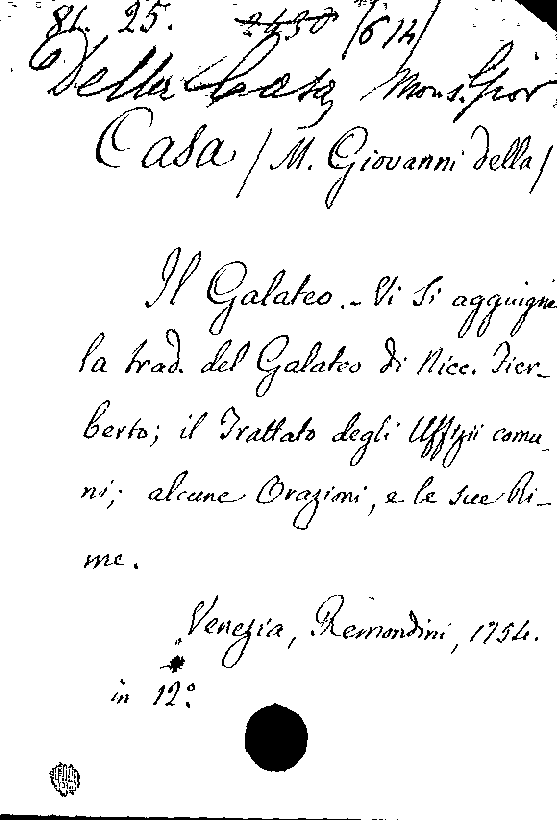 81. 25. 2430 /614/
Della Casa Mons. Giov
Casa / M. Giovanni della /
Il Galateo. - Vi si aggiugne
la trad. del Galateo di Nicc. Pier-
berto; il Trattato degli Uffizii comu-
ni; alcune Orazioni, e le sue Ri-
me.
Venezia, Remondini, 1754.
in 12º